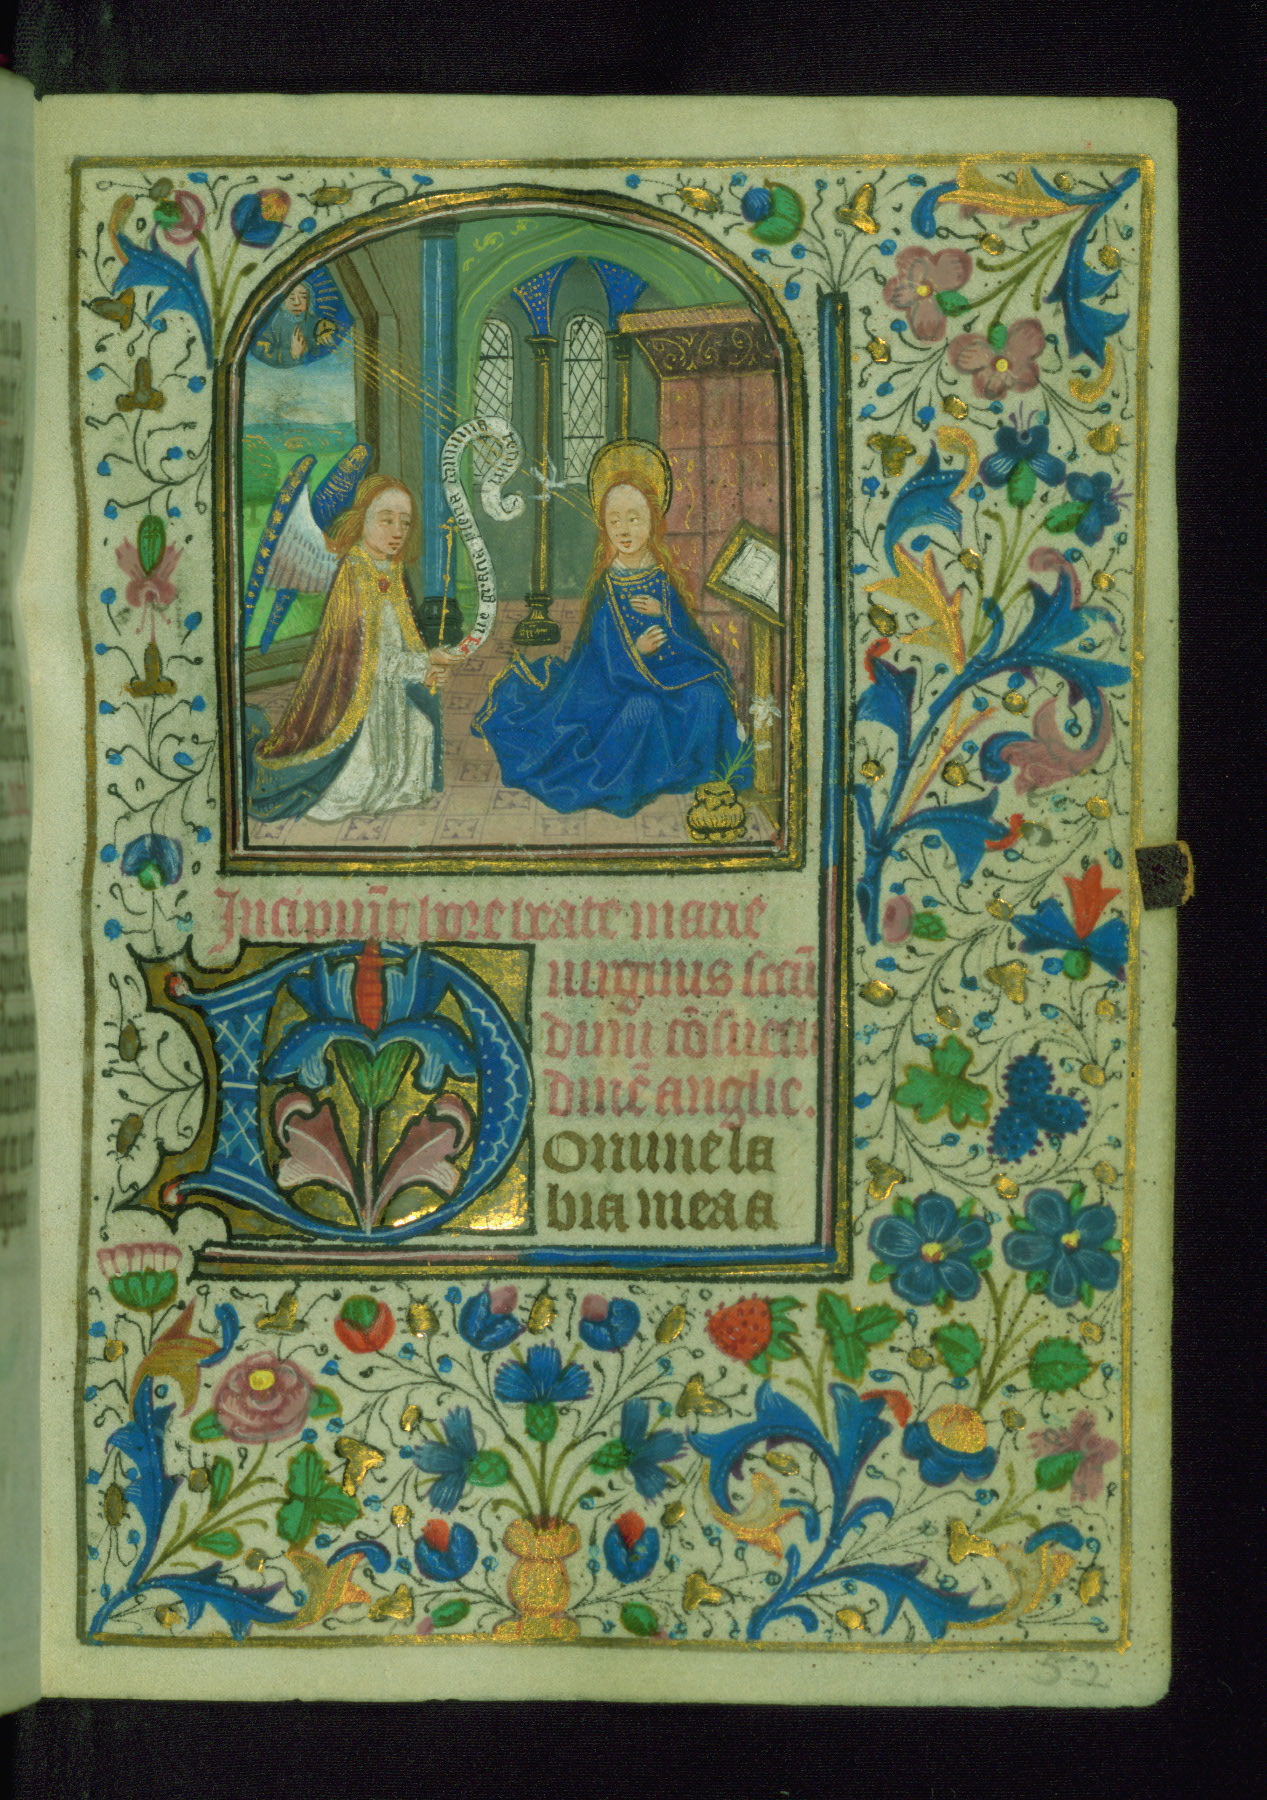 Aue gracia plena dominus tecum
Incipiūt hore beate marie
uirginis secū
dum cōsuetu
dinē anglie.
Domine la
bia mea a
52